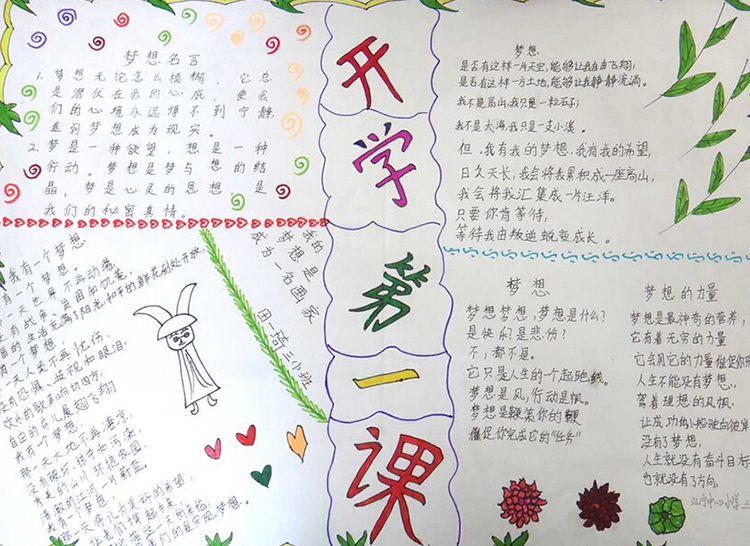 梦想名言
1. 梦想无论怎么模糊，它总
是潜伏在我的心底，使我
们的心境永远得不到宁静，
直到梦想成为现实。
2. 梦是一种欲望，想是一种
行动。梦想是梦与想的结
晶，梦是心灵的思想，是
我们的秘密真情。
开
学
第
一
课
梦想
是否有这样一片天空，能够让我自由飞翔；
是否有这样一方土地，能够让我静静流淌。
我不是高山，我只是一粒石子；
我不是大海，我只是一支小溪。
但，我有我的梦想，我有我的希望，
日久天长，我会将我累积成一座高山，
我会将我汇集成一片汪洋。
只要你肯等待，
等待我由叛逆蜕变成长。
我有一个梦想
有一个梦想。
一天世界不再动荡，
有战争、贫困和饥荒，
有一个梦想。
一天人类不再忧伤，
没有恐惧、歧视和眼泪，
欢乐的歌声响彻四方，
自由的鸟儿展翅飞翔
我有个梦想。
我有一个梦想。
我的
梦想是
成为一名画家
田一琦 三小班
梦想
梦想梦想，梦想是什么？
是快乐？是悲伤？
不，都不是。
它只是人生的一个起跑线。
梦想是风，行动是帆。
梦想是鞭策你的鞭
催促你完成它的“任务”
梦想的力量
梦想是最神奇的营养，
它有着无穷的力量
它会用它的力量催促你
人生不能没有梦想，
驾着理想的风帆
让成功的小船驶向彼岸
没有了梦想，
人生就没有奋斗目标
也就没有了方向。